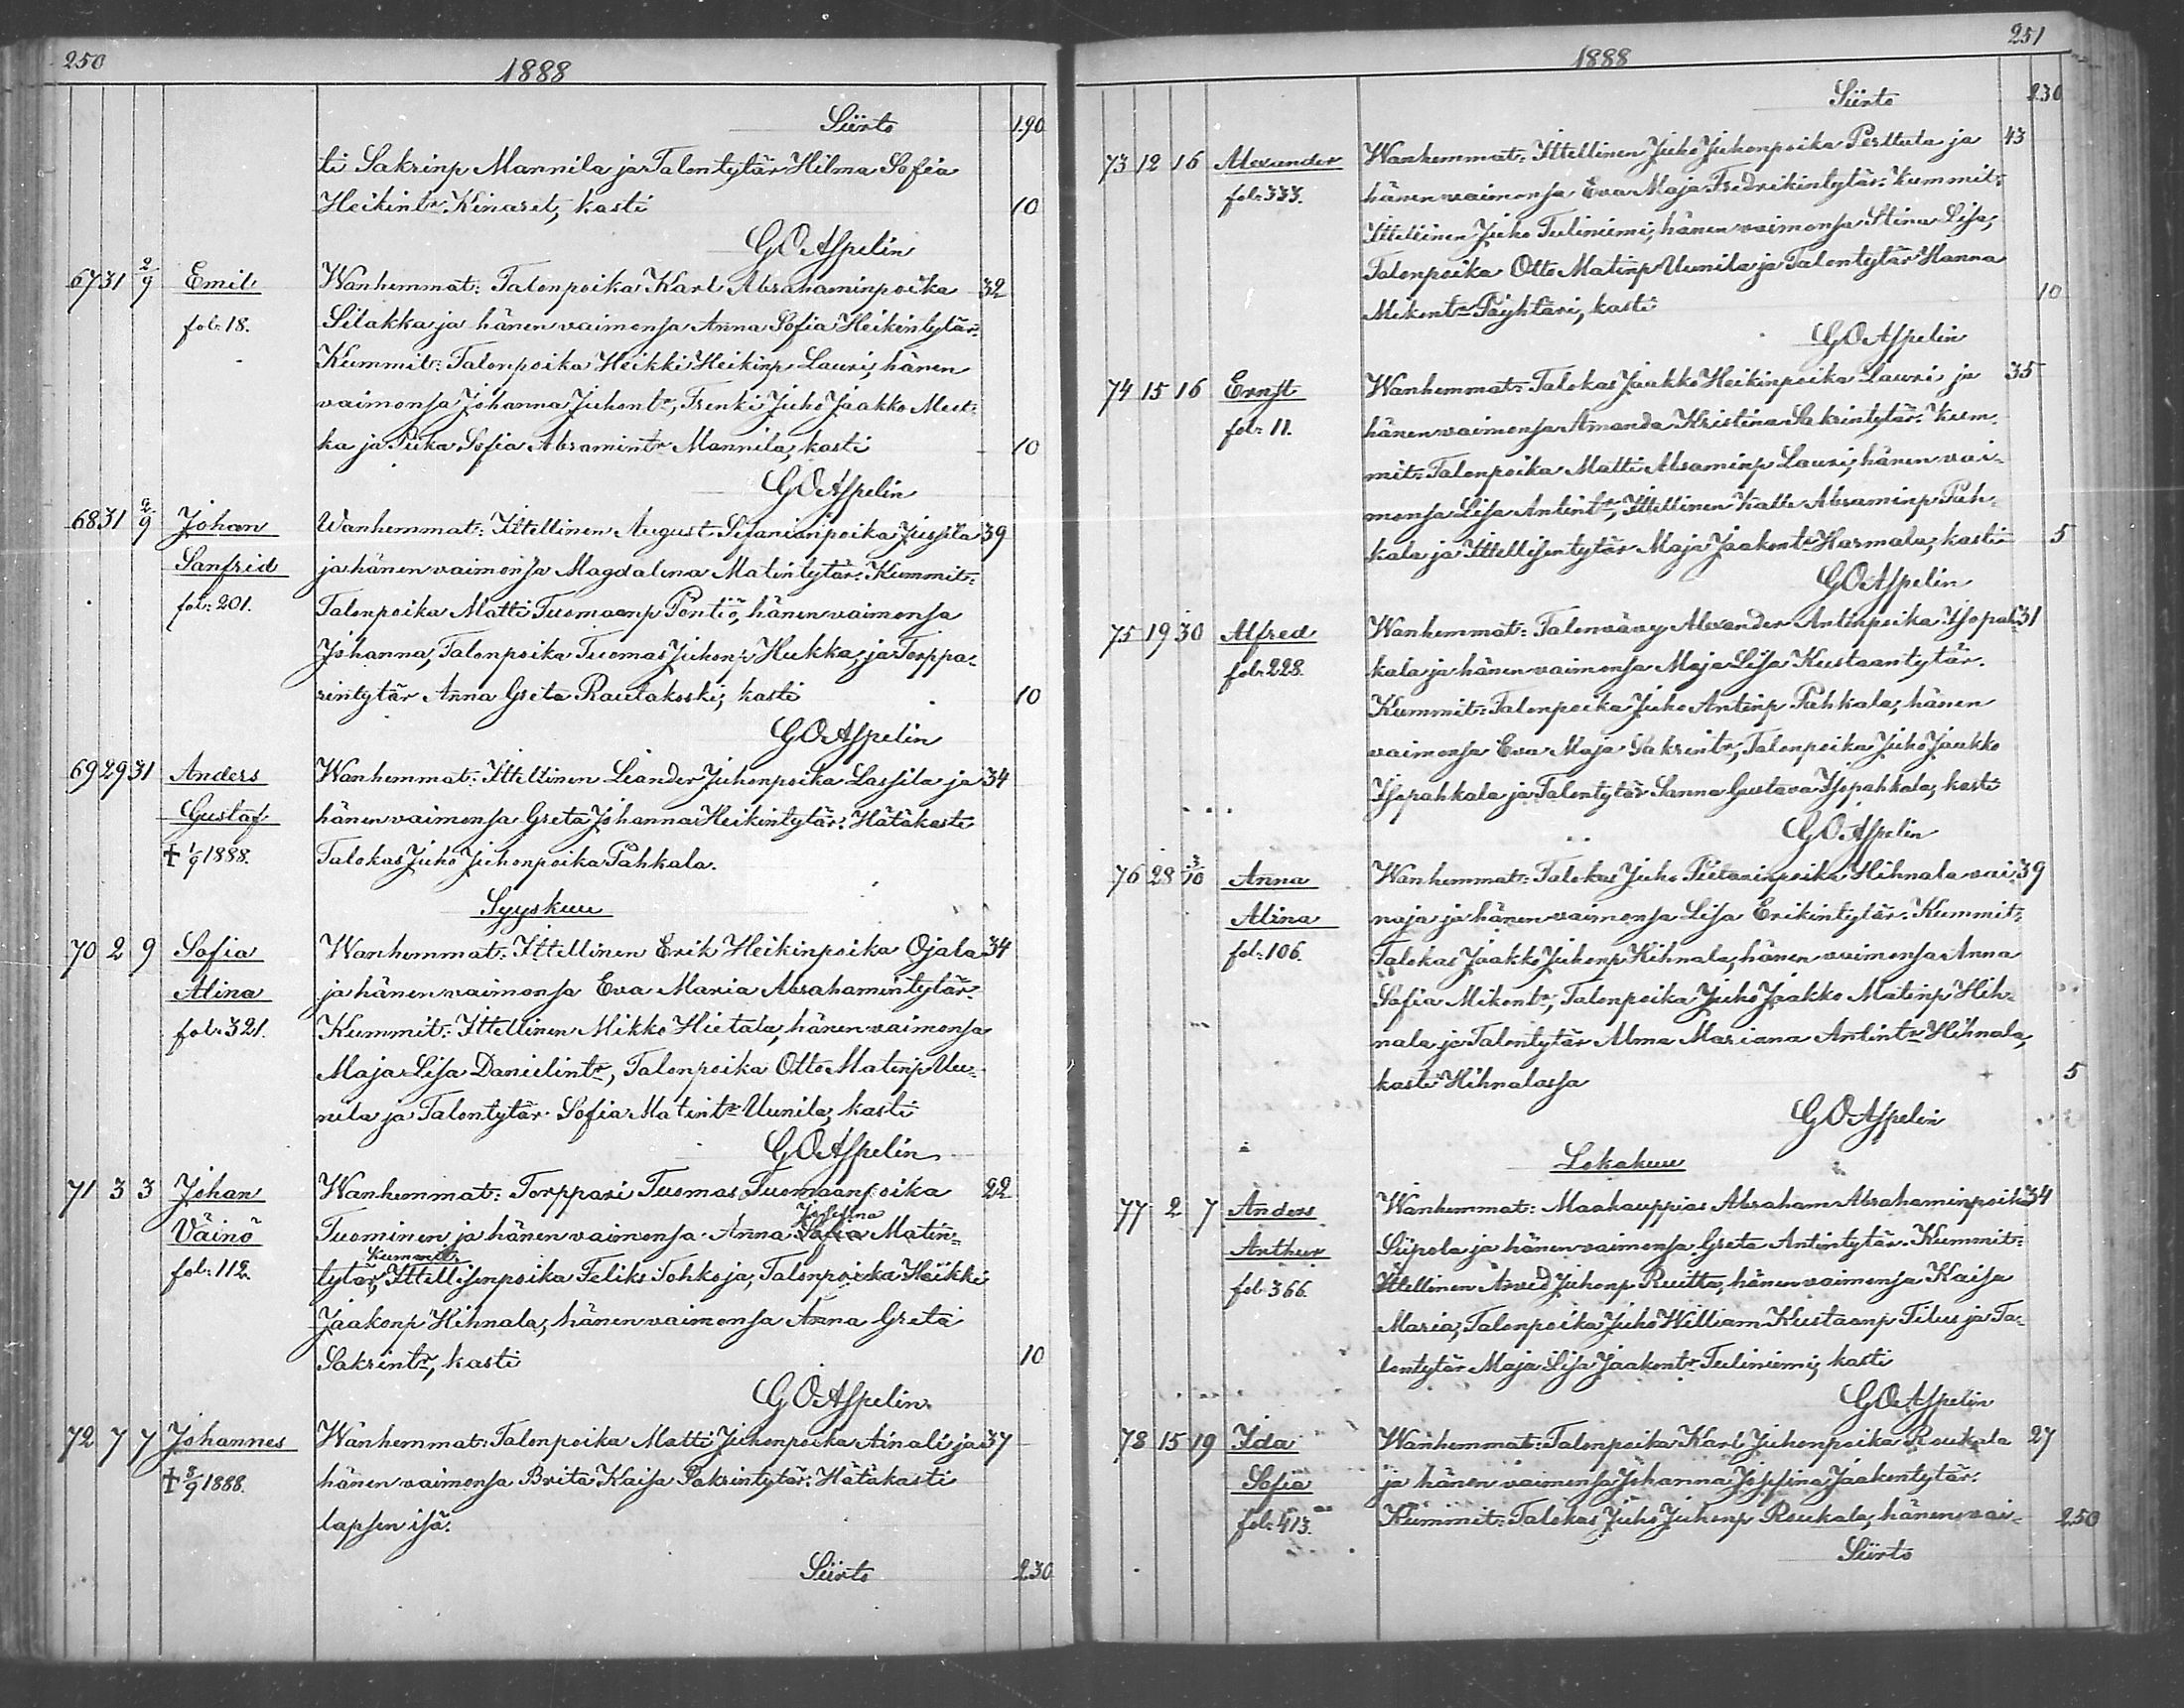 250
1888
Siirto 190
ti Sakrinp Mannila ja Talontytär Hilma Sofia
Heikintr Kinaret, kasti 10
GOAspelin
67 31 2/9 Emil Wanhemmat: Talonpoika Karl Abrahaminpoika 32
fol. 18. Silakka ja hänen vaimonsa Anna Sofia Heikintytär.
Kummit: Talonpoika Heikki Heikinp Lauri, hänen
vaimonsa Johanna Juhontr, Trenki Juho Jaakko Mest-
ka ja Piika Sofia Abramintr Mannila, kasti 10
GOAspelin
68 31 2/9 Johan Wanhemmat: Ittellinen August Sefanianpoika Jussila 39
Sanfrid ja hänen vaimonsa Magdalena Matintytär. Kummit:
fol. 201. Talonpoika Matti Tuomaanp Pöntiö, hänen vaimonsa
Johanna, Talonpoika Tuomas Juhonp Hukka, ja Torppa-
rintytär Anna Greta Rautakoski, kasti 10
GOAspelin
69 29 31 Anders Wanhemmat: Ittellinen Leander Juhonpoika Lassila ja 34
Gustaf hänen vaimonsa Greta Johanna Heikintytär. Hätäkasti
† 1/9 1888. Talokas Juho Juhonpoika Pahkala.
Syyskuu
70 2 9 Sofia Wanhemmat: Ittellinen Erik Heikinpoika Ojala 34
Alina ja hänen vaimonsa Eva Maria Abrahamintytär.
fol. 321. Kummit: Ittellinen Mikko Hietala, hänen vaimonsa
Maja Lisa Danielintr, Talonpoika Otto Matinp Uu-
nila ja Talontytär Sofia Matintr Uunila, kasti
GOAspelin
71 3 3 Johan Wanhemmat: Torppari Tuomas Tuomaanpoika 22
Josefina
Väinö Tuominen ja hänen vaimonsa Anna Sofia Matin-
Kummit:
fol. 112. tytär, Ittellisenpoika Feliks Tohkoja, Talonpoika Heikki
Jaakonp Hihnala, hänen vaimonsa Anna Greta
Sakrintr, kasti 10
GOAspelin
72 7 7 Johannes Wanhemmat: Talonpoika Matti Juhonpoika Ainali ja 37
† 8/9 1888. hänen vaimonsa Brita Kaisa Sakrintytär. Hätäkasti
lapsen isä.
Siirto 230
251
1888
Siirto 230
73 12 16 Alexander Wanhemmat: Ittellinen Juho Juhonpoika Perttula ja 43
fol. 333. hänen vaimonsa Eva Maja Fredrikintytär. Kummit:
Ittellinen Juho Tuliniemi, hänen vaimonsa Stina Lisa,
Talonpoika Otto Matinp Uunila ja Talontytär Hanna
Mikontr Päyhtäri, kasti 10
GOAspelin
74 15 16 Ernst Wanhemmat: Talokas Jaakko Heikinpoika Lauri ja 35
fol. 11. hänen vaimonsa Amanda Kristina Sakrintytär. Kum-
mit: Talonpoika Matti Abraminp Lauri, hänen vai-
monsa Lisa Antintr, Ittellinen Kalle Abraminp Pah-
kala ja Ittellisentytär Maja Jaakontr Harmala, kasti 5
GOAspelin
75 19 30 Alfred Wanhemmat: Talonvävy Alexander Antinpoika Isopah- 31
fol. 228. kala ja hänen vaimonsa Maja Lisa Kustaantytär.
Kummit: Talonpoika Juho Antinp Pahkala, hänen
vaimonsa Eva Maja Sakrintr, Talonpoika Juho Jaakko
Isopahkala ja Talontytär Sanna Gustava Isopahkala, kasti
GOAspelin
76 28 3/10 Anna Wanhemmat: Talokas Juho Pietarinpoika Hihnala vai- 39
Alina naja ja hänen vaimonsa Lisa Erikintytär. Kummit:
fol. 106. Talokas Jaakko Juhonp Hihnala, hänen vaimonsa Anna
Sofia Mikontr, Talonpoika Juho Jaakko Matinp Hih-
nala ja Talontytär Alma Mariana Antintr Hihnala,
kasti Hihnalassa 5
GOAspelin
Lokakuu
77 2 7 Anders Wanhemmat: Maakauppias Abraham Abrahaminpoika 34
Arthur Siipola ja hänen vaimonsa Greta Antintytär. Kummit:
fol. 366. Ittellinen Arved Juhonp Ruitta, hänen vaimonsa Kaisa
Maria, Talonpoika Juho William Kustaanp Tilus ja Ta-
lontytär Maja Lisa Jaakontr Tuliniemi, kasti
GOAspelin
78 15 19 Ida Wanhemmat: Talonpoika Karl Juhonpoika Roukala 27
Sofia ja hänen vaimonsa Johanna Josefina Jaakontytär.
fol. 413. Kummit: Talokas Juho Juhonp Roukala, hänen vai- 250
Siirto